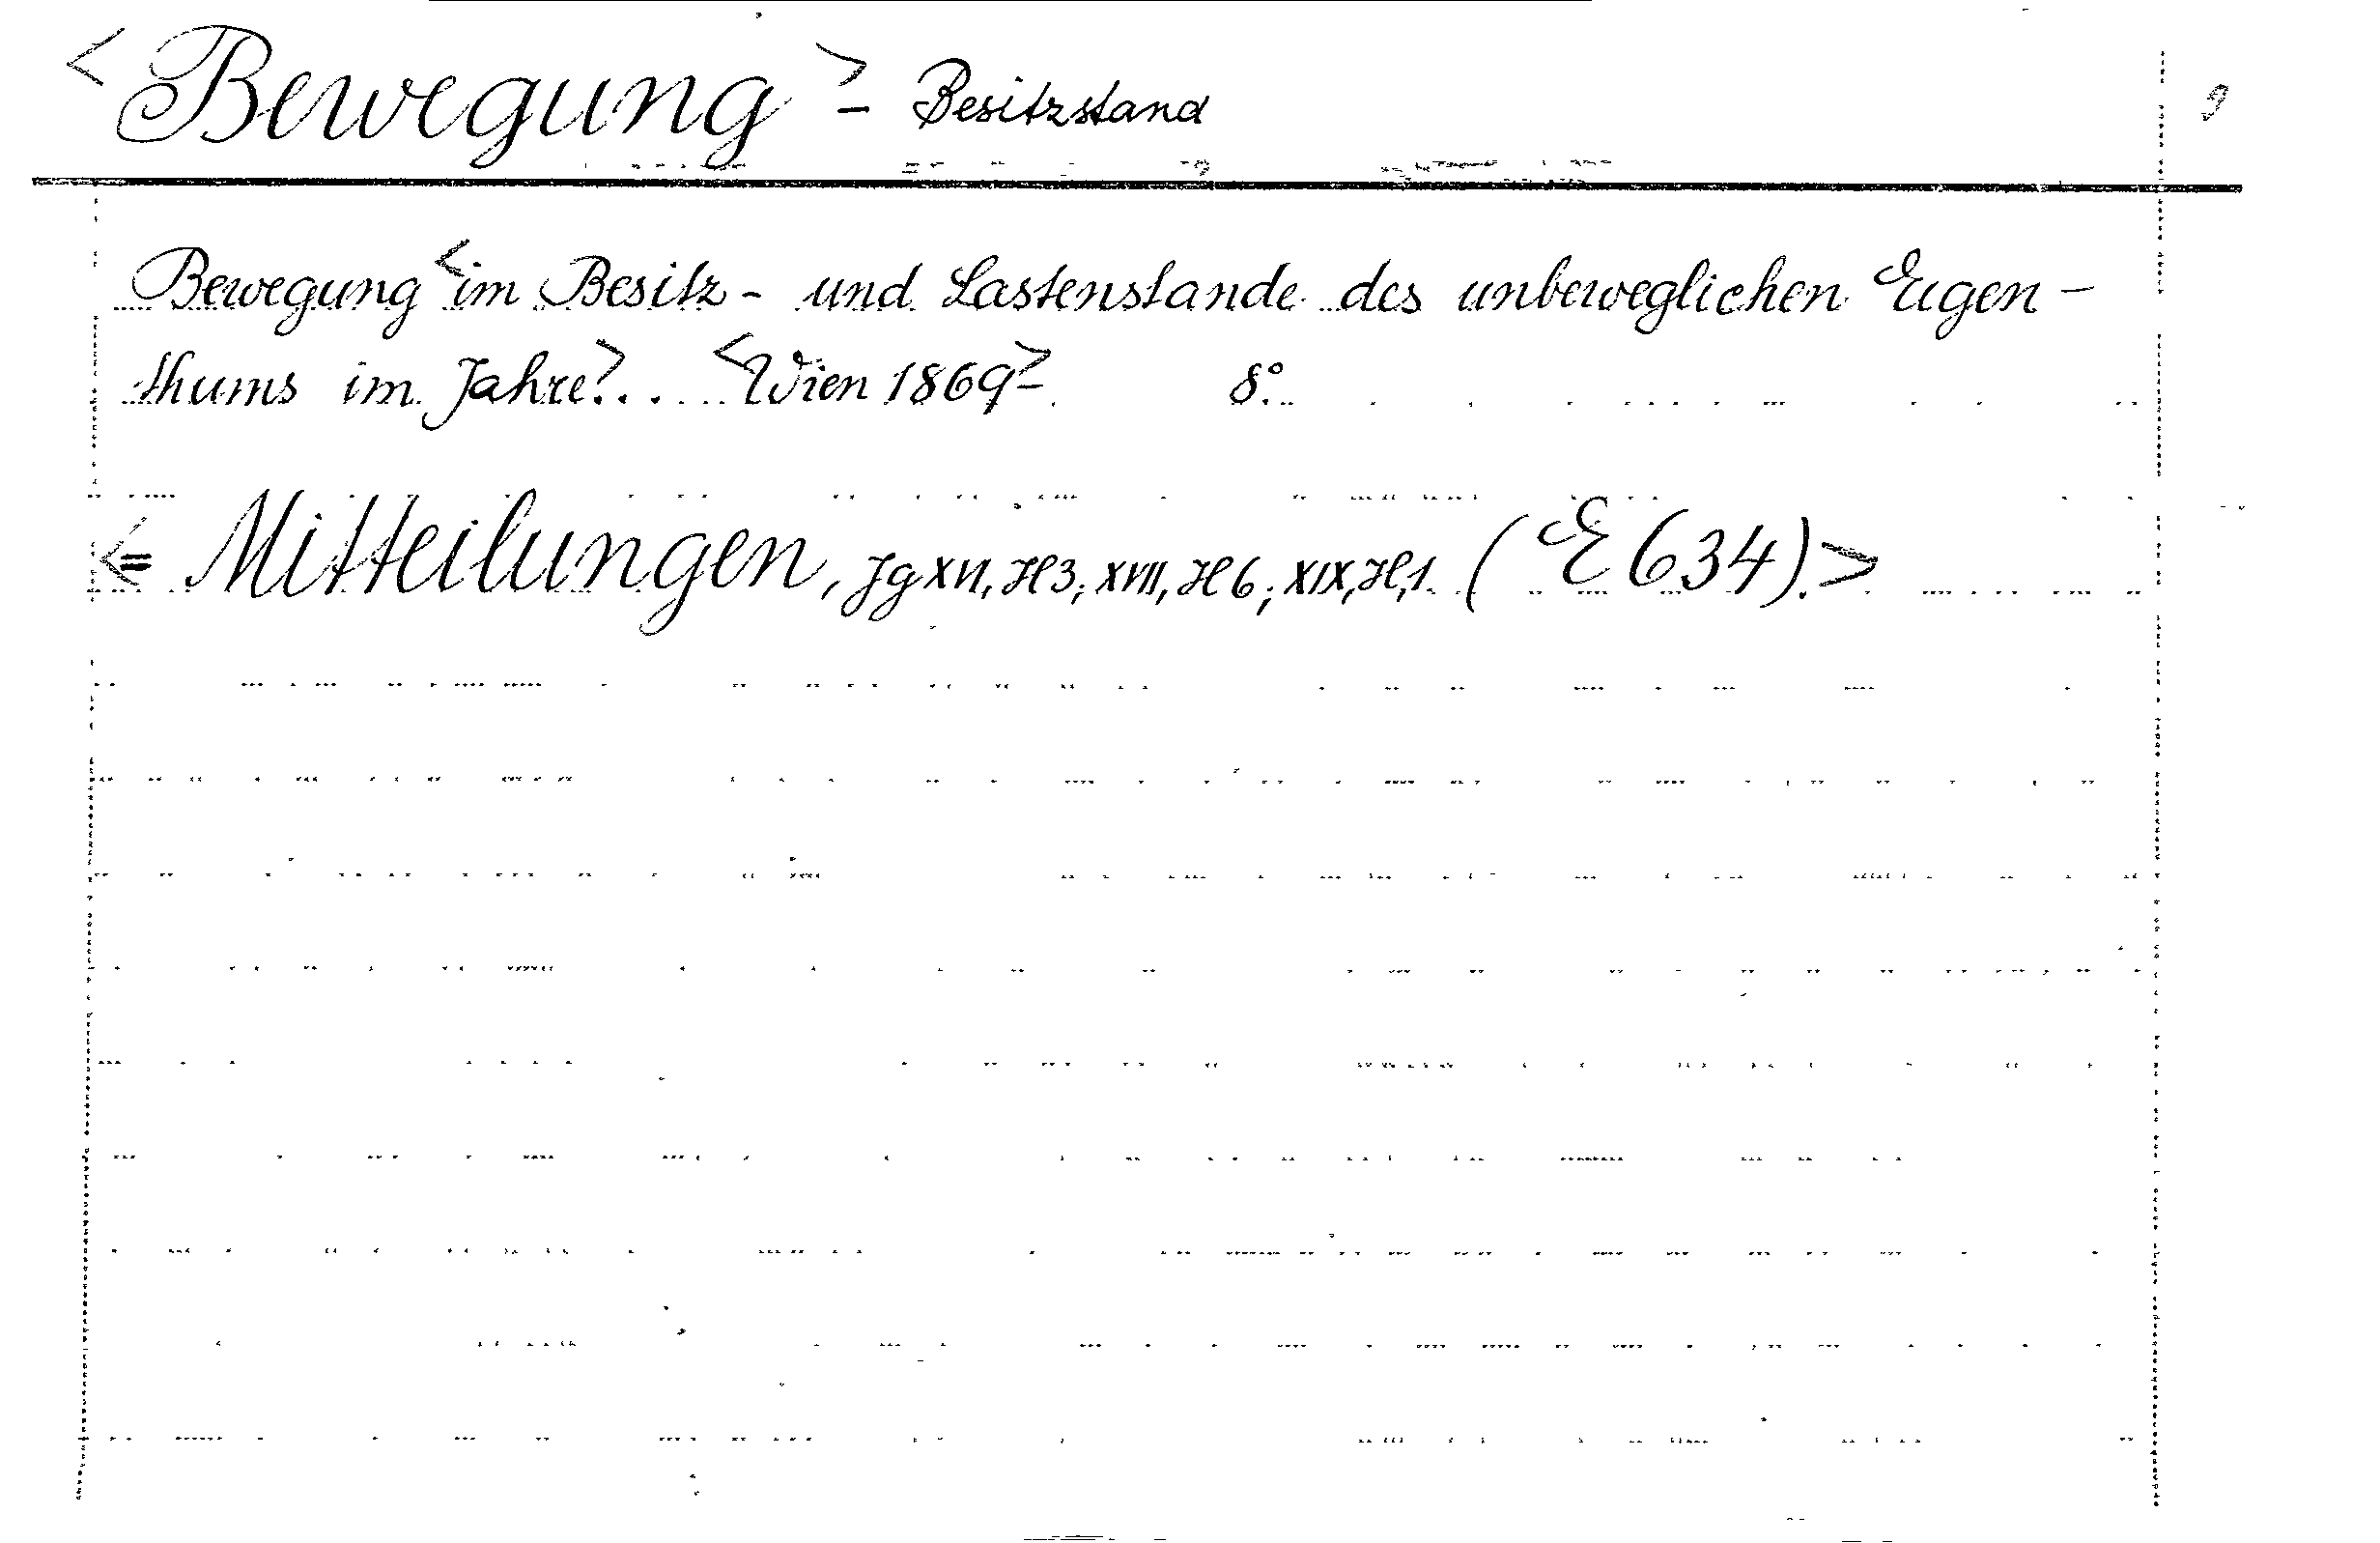 <Bewegung> - Besitzstand 9
Bewegung <im Besitz - und Lastenstande des unbeweglichen Eigen -
thums im Jahre> ... <Wien 1869> - 8°.
<= Mitteilungen, Jg XVI, H3; XVII, H 6; XIX, H, 1. (E 634).>